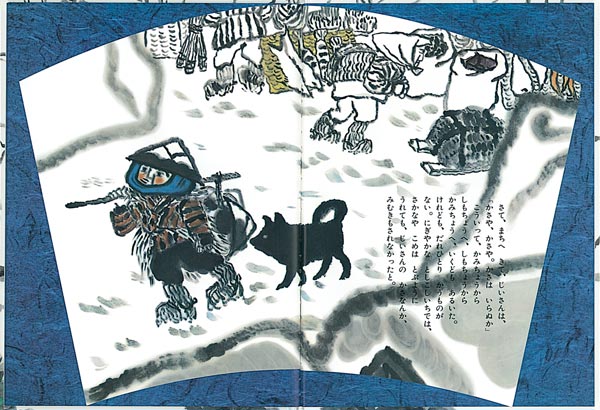 さて、まちへ きた じいさんは、
「かさや、かさや。かさは いらぬか」
こういって、かみちょうから
しもちょうへ、しもちょうから
かみちょうへ、いくども あるいた。
けれども、だれひとり かうものが
ない。にぎやかな としこしいちでは、
さかなや こめは とぶように
うれても、じいさんの かさなんか、
みむきもされなかったと。